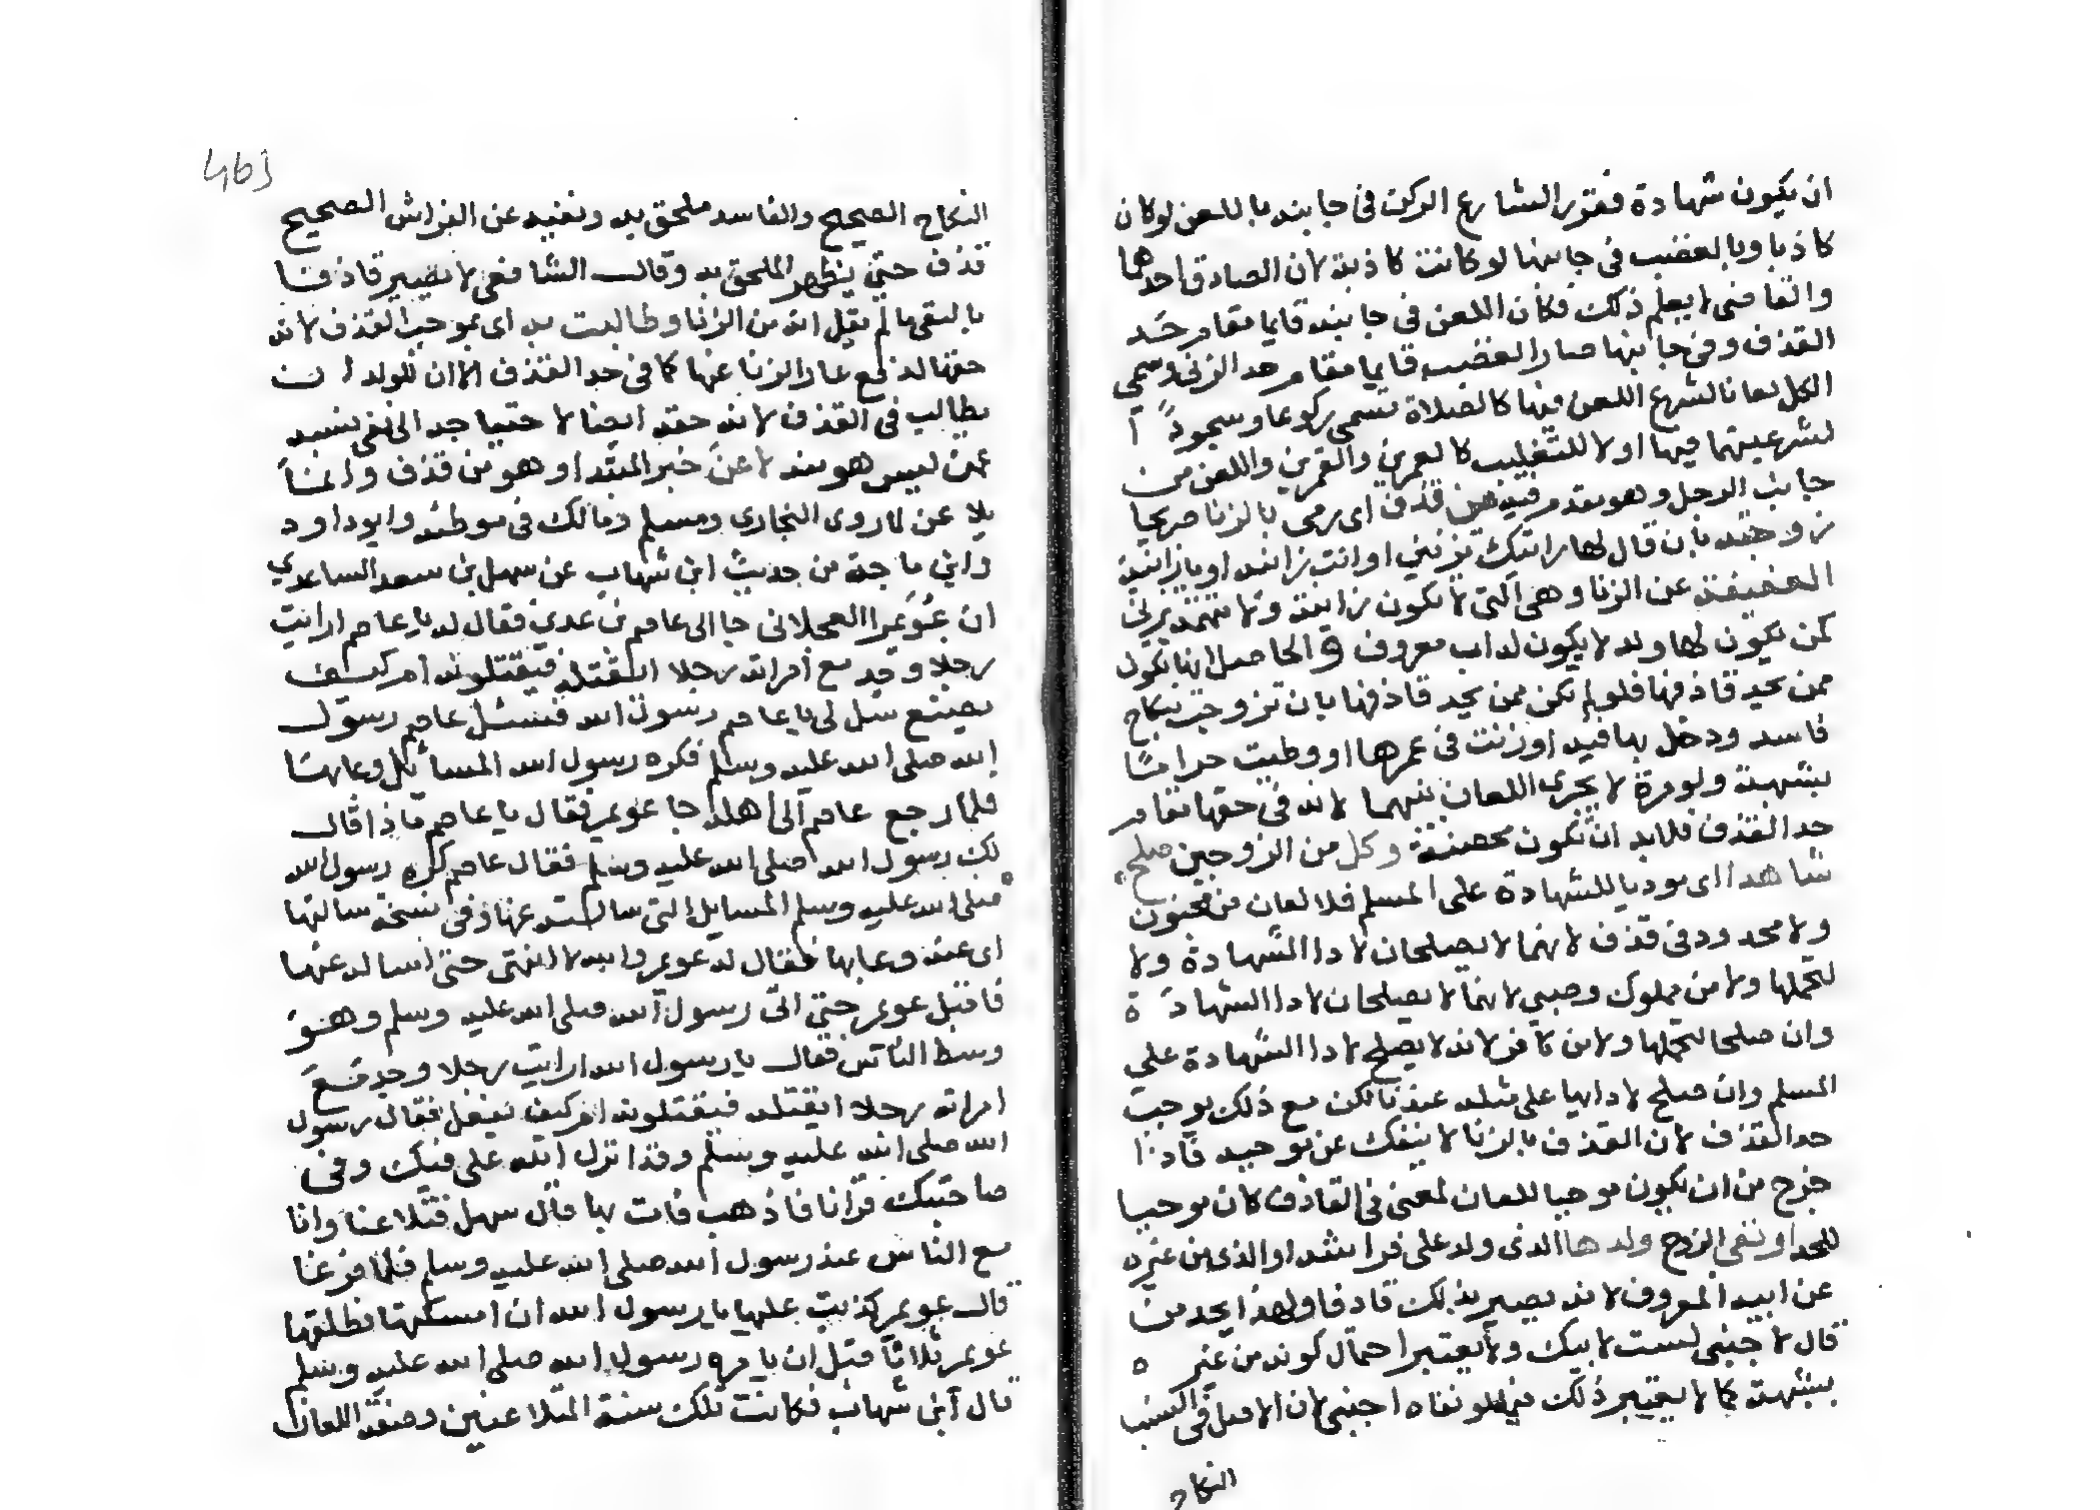 ان يكون شهادة فقرر الشارع الركن في جانبه باللعن لو كان
كاذبا وبالغضب في جانبها لو كانت كاذبة لان الصادق احدهما
والقاضي لا يعلم ذلك فكان اللعن في جانبه قايما مقام حد
القذف وفي جانبها صار الغضب قايما مقام حد الزنى وسمى
الكل لعانا لشرع اللعن فيها كالصلاة تسمى ركوعا وسجودا
لشرعيتهما فيها او لا للتغليب كالعمرين والقمرين واللعن من
جانب الرجل وهو مقدم فيه من قذف اي رمى بالزنا صريحا
زوجته بان قال لها رايتك تزنين او انت زانية او يا زانية
العفيفة عن الزنا وهي التي لا تكون زانية ولا متهمة بزنى
كمن يكون لها ولد لا يكون له اب معروف والحاصل انها تكون
ممن يحد قاذفها فلو لم تكن ممن يحد قاذفها بان تزوجت بنكاح
فاسد ودخل بها فيه او زنت في عمرها او وطيت حراما
بشبهة ولو مرة لا يجري اللعان بينهما لانه في حقها مقام
حد القذف فلا بد ان تكون محصنة وكل من الزوجين صلح
شاهدا اي موديا للشهادة على المسلم فلا لعان من مجنون
ولا محدود في قذف لانهما لا يصلحان لادا الشهادة ولا
لتحملها ولا من مملوك وصبي لانهما لا يصلحان لادا الشهادة
وان صلحا لتحملها ولا من كافر لانه لا يصلح لادا الشهادة علي
المسلم وان صلح لادايها على مثله عندنا لكن مع ذلك يوجب
حد القذف لان القذف بالزنا لا ينفك عن موجبه فاذا
خرج من ان يكون موجبا للعان لمعنى في القاذف كان موجبا
للحد او نفى الزوج ولدها الذي ولد على فراشه او الذي من غيره
عن ابيه المعروف لانه يصير بذلك قاذفا ولهذا يحد من
قال لاجنبي لست لابيك ولا يعتبر احتمال كونه من غيره
بشبهة كما لا يعتبر ذلك فيما لو نفاه اجنبي لان الاصل في النسب
النكاح
463
النكاح الصحيح والفاسد ملحق به ونفيه عن الفراش الصحيح
قذف حتى يظهر الملحق به وقال الشافعي لا يصير قاذفا
بالنفي ما لم يقل انه من الزنا وطالبت به اي بموجب القذف لانه
حقها لدفع عار الزنا عنها كما في حد القذف الا ان للولد ان
يطالب في القذف لانه حقه ايضا لاحتياجه الى نفي نسبه
عمن ليس هو منه لاعن خبر المبتدا وهو من قذف وانما
يلاعن لما روى البخاري ومسلم ومالك في موطئه وابو داود
وابن ماجة من حديث ابن شهاب عن سهل بن سعد الساعدي
ان عويمرا العجلاني جا الى عاصم بن عدي فقال له يا عاصم ارايت
رجلا وجد مع امراته رجلا ايقتله فيقتلونه ام كيف
يصنع سل لي يا عاصم رسول الله فسئل عاصم رسول
الله صلى الله عليه وسلم فكره رسول الله المسائل وعابها
فلما رجع عاصم الى اهله جا عويمر فقال يا عاصم ماذا قال
لك رسول الله صلى الله عليه وسلم فقال عاصم كره رسول الله
صلى الله عليه وسلم المسايل التي سالته عنها وفي نسخة سالتها
اي عنه وعابها فقال له عويمر والله لا انتهى حتى اساله عنها
فاقبل عويمر حتى اتى رسول الله صلى الله عليه وسلم وهو
وسط الناس فقال يا رسول الله ارايت رجلا وجد مع
امراته رجلا ايقتله فيقتلونه ام كيف يفعل فقال رسول
الله صلى الله عليه وسلم وقد انزل الله على فيك وفي
صاحبتك قرانا فاذهب فات بها قال سهل فتلاعنا وانا
مع الناس عند رسول الله صلى الله عليه وسلم فلما فرغنا
قال عويمر كذبت عليها يا رسول الله ان امسكتها فطلقها
عويمر ثلاثا قبل ان يامره رسول الله صلى الله عليه وسلم
قال ابن شهاب فكانت تلك سنة المتلاعنين وصفة اللعان